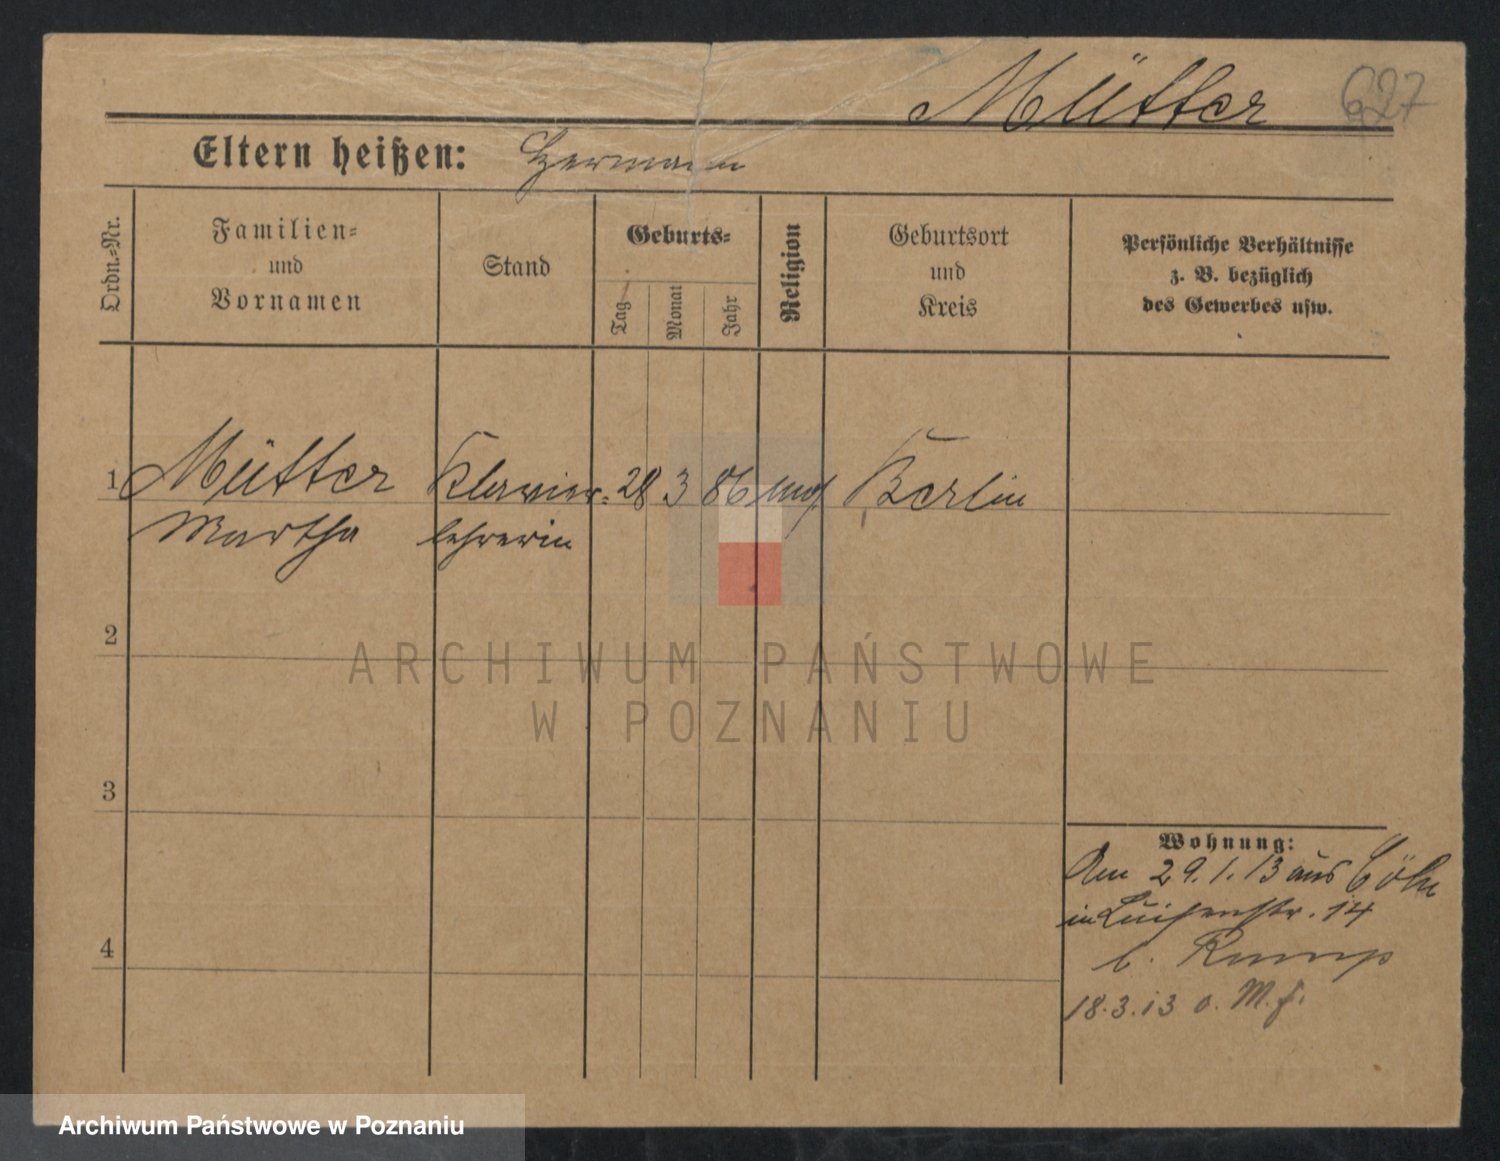 Mütter
627
Eltern heißen: Hermann
Ordn.=Nr.
Familien=
und
Vornamen
Stand
Geburts=
Tag
Monat
Jahr
Religion
Geburtsort
und
Kreis
Persönliche Verhältnisse
z. B. bezüglich
des Gewerbes usw.
1 Mütter Klavier= 28 3 86 Berlin
Martha lehrerin
2
3
4
Wohnung:
Am 29.1.13 aus Cöln
in Luisenstr. 14
b. Rump
18.3.13 o. M. f.
ARCHIWUM PAŃSTWOWE
W POZNANIU
Archiwum Państwowe w Poznaniu